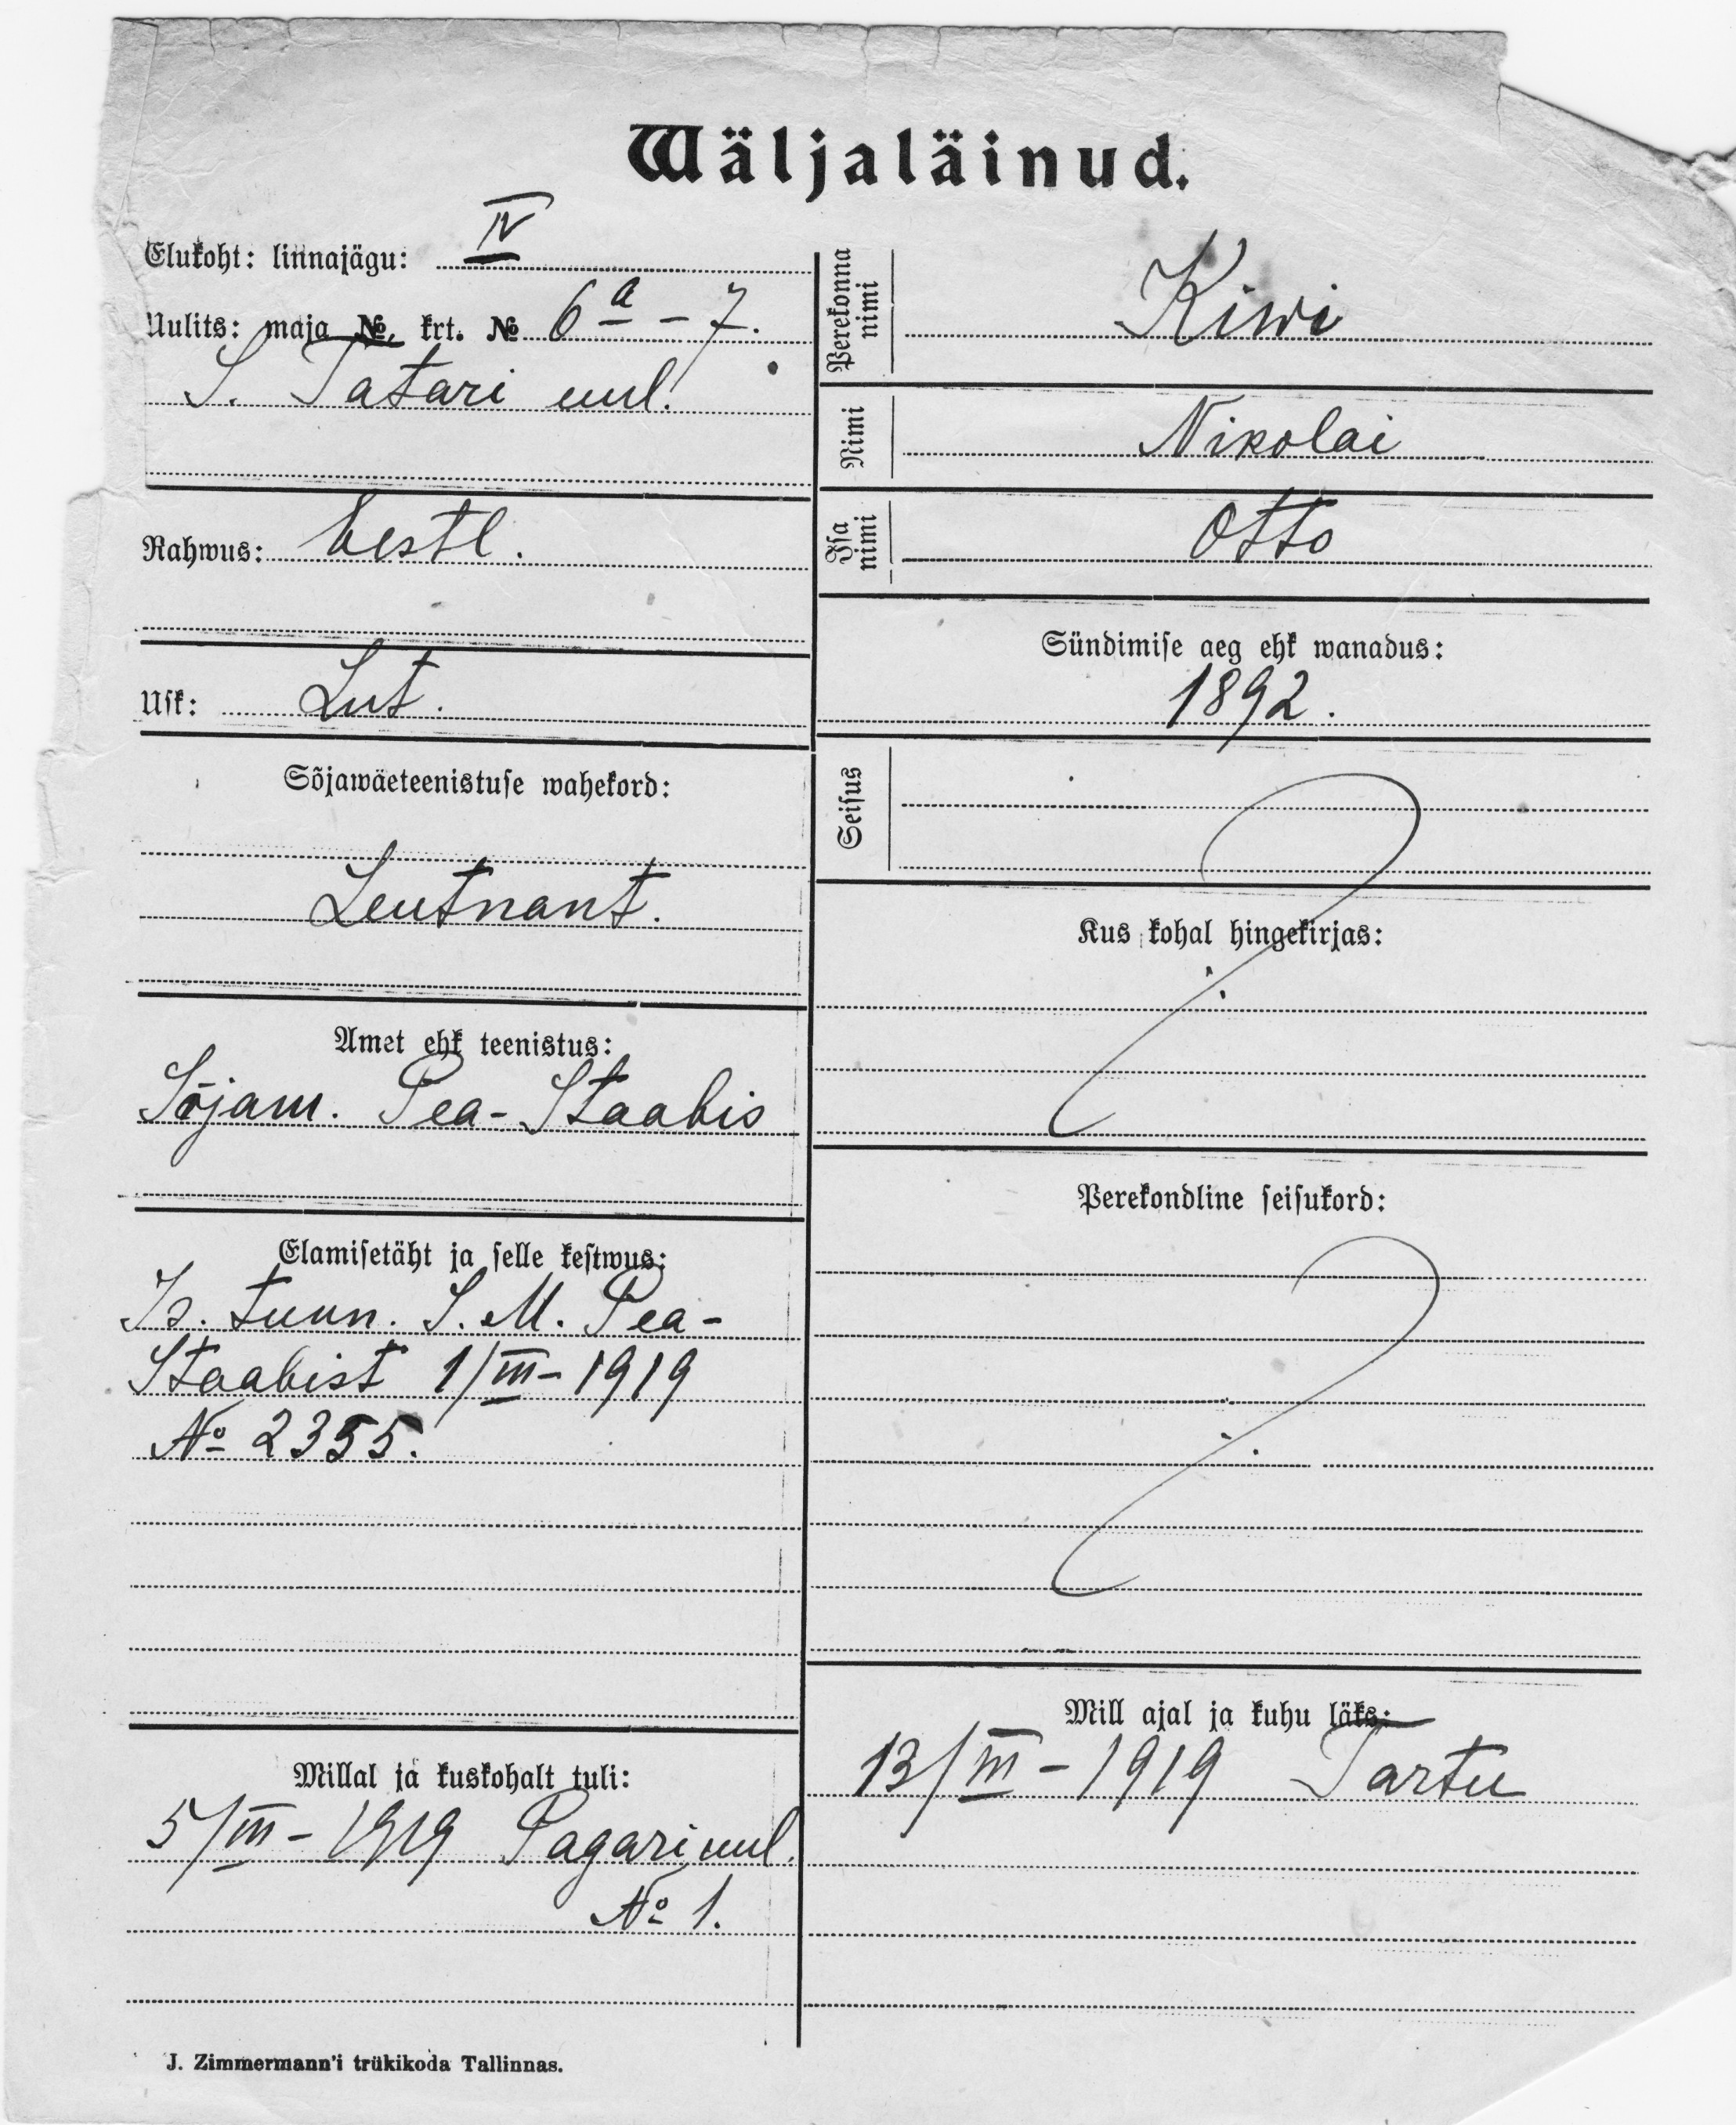 Wäljaläinud.
Elukoht: linnajägu: IV
Uulits: maja №, krt. № 6a – 7.
S. Tatari uul.
Rahwus: Eestl.
Usk: Lut.
Sõjawäeteenistuse wahekord:
Leutnant.
Amet ehk teenistus:
Sõjam. Pea-Staabis
Elamisetäht ja selle kestwus:
Is. tunn. S. M. Pea-
Staabist 1/III – 1919
№ 2355.
Millal ja kuskohalt tuli:
5/III – 1919 Pagari uul.
№ 1.
Perekonna nimi Kiwi
Nimi Nikolai
Isa nimi Otto
Sündimise aeg ehk wanadus:
1892.
Seisus
Kus kohal hingekirjas:
Perekondline seisukord:
Mill ajal ja kuhu läks:
13/III – 1919 Tartu
J. Zimmermann'i trükikoda Tallinnas.